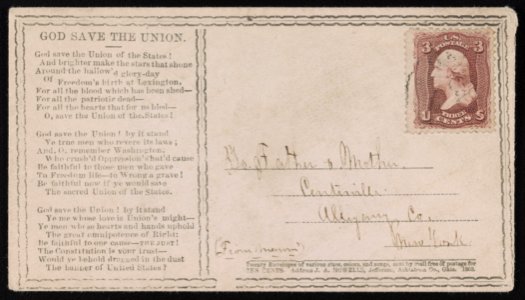 GOD SAVE THE UNION.
God save the Union of the States!
And brighter make the stars that shone
Around the hallow'd glory-day
Of Freedom's birth at Lexington.
For all the blood which has been shed—
For all the patriotic dead—
For all the hearts that for us bled—
O, save the Union of the States!
God save the Union! by it stand
Ye true men who revere its laws;
And, O, remember Washington,
Who crush'd Oppression's hat'd cause
Be faithful to those men who gave
To Freedom life—to Wrong a grave!
Be faithful now if ye would save
The sacred Union of the States.
God save the Union! by it stand
Ye me whose love is Union's might—
Ye men whose hearts and hands uphold
The great omnipotence of Right:
Be faithful to our cause—
The Constitution is your trust—
Would ye behold dragged in the dust
The banner of United States?
3 U.S. POSTAGE 3
U S
THREE CENTS
To Father & Mother
Centerville
Allegany Co.
New York
Twenty Envelopes of various sizes, colors, and songs, sent by mail free of postage for
TEN CENTS. Address J. A. HOWELLS, Jefferson, Ashtabula Co., Ohio. 1863.